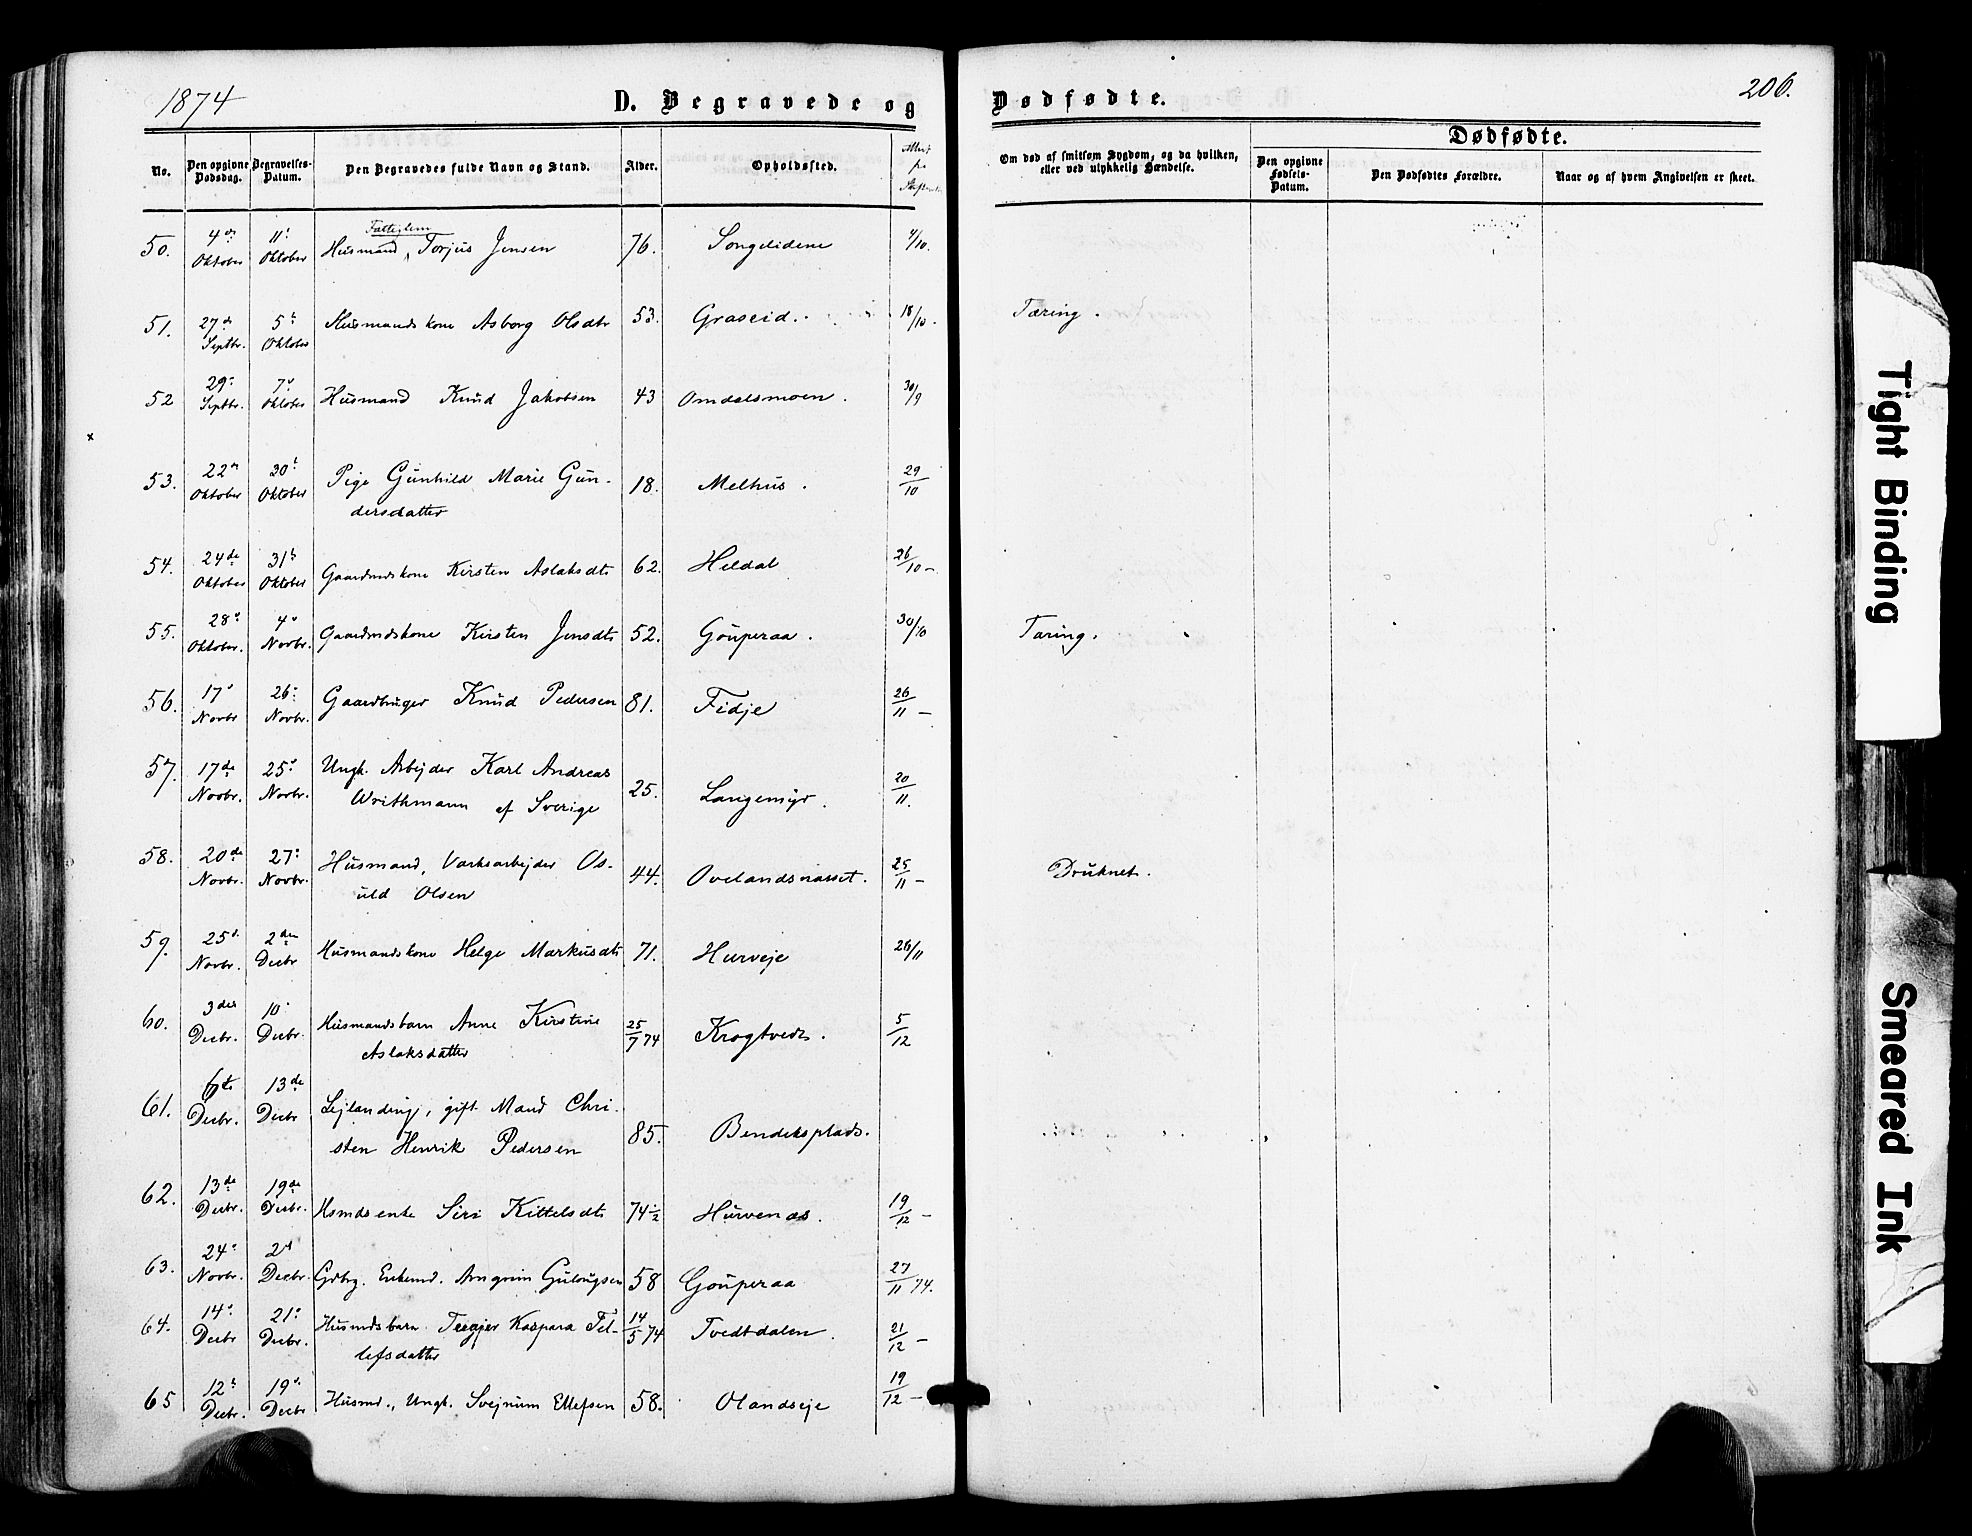 1874
D. Begravede og Dødfødte.
206.
No.
Den opgivne Dødsdag.
Begravelses-Datum.
Den Begravedes fulde Navn og Stand.
Alder.
Opholdssted.
Om død af smitsom Sygdom, og da hvilken, eller ved ulykkelig Hændelse.
Dødfødte.
Den opgivne Fødsels-Datum.
Den Dødfødtes Forældre.
Naar og af hvem Angivelsen er skeet.
Fattiglem
50. 4de Oktober 11t Oktober Husmand, Torjus Jensen 76. Songelidene 4/10.
51. 27de Septbr. 5t Oktober Husmandskone Asborg Olsdtr 53. Graseid. 18/10. Tæring.
52 29de Septbr. 7de Oktober Husmand Knud Jakobsen 43 Omdalsmoen. 30/9
53. 22de Oktober 30t Oktober Pige Gunhild Marie Gun-
dersdatter 18. Melhus. 29/10
54. 24de Oktober 31t Oktober Gaardmdskone Kirsten Aslaksdtr 62. Heldal 26/10 -
55. 28de Oktober. 4de Novbr. Gaardmdskone Kirsten Jensdtr 52. Gouperaa. 30/10 Tæring.
56. 17de Novbr 26de Novbr. Gaardbruger Knud Pedersen 81. Fidje 26/11 -
57. 17de Novbr. 25de Novbr. Ungk. Arbejder Karl Andreas
Writhmann af Sverige 25. Langemyr. 20/11.
58. 20de Novbr. 27de Novbr. Husmand, Værksarbejder Os-
uld Olsen 44. Ovelandsnæsset. 25/11 - Druknet.
59. 25de Novbr. 2den Decbr Husmandskone Helge Markusdtr 71. Hurveje 26/11
60. 3die Decbr. 10de Decbr. Husmandsbarn Anne Kirstine
Aslaksdatter 25/7 74 Krogtvedt. 5/12
61. 6te Decbr. 13de Decbr Lejlænding, gift Mand Chri-
sten Henrik Pedersen 85. Bendiksplads.
62. 13de Decbr. 19de Decbr. Hsmdsenke Siri Kittelsdtr 74½ Hurvenæs. 19/12 -
63. 24de Novbr. 2d Decbr. Gdbrg. Enkemd. Arngrim Gulougsen 58 Gouperaa 27/11 74.
64. 14de Decbr 21de Decbr. Husmdsbarn Teegjer Kaspara Tel-
lefsdatter 14/5 74 Tvedtdalen. 21/12 -
65 12t Decbr. 19de Decbr Husmd., Ungk. Svejnum Ellefsen 58. Olandseje 19/12 -
Tight Binding
Smeared Ink